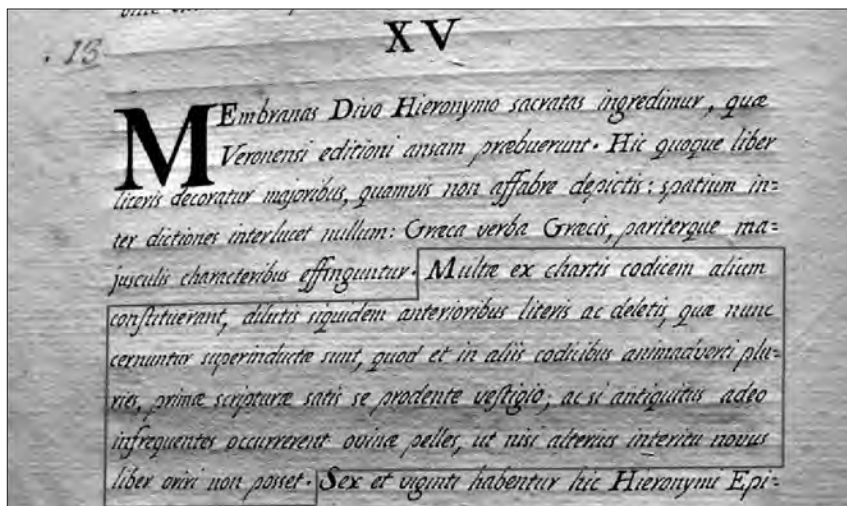 XV
. 13
MEmbranas Divo Hieronymo sacratas ingredimur, quæ
Veronensi editioni ansam præbuerunt. Hic quoque liber
literis decoratur majoribus, quamvis non affabre depictis: spatium in=
ter dictiones interlucet nullum: Græca verba Græcis, pariterque ma=
jusculis characteribus effinguntur. Multæ ex chartis codicem alium
constituerant, dilutis siquidem anterioribus literis ac deletis, quæ nunc
cernuntur superinductæ sunt, quod et in aliis codicibus animadverti plu=
ries, primæ scripturæ satis se prodente vestigio; ac si antiquitus adeo
infrequentes occurrerent ovinæ pelles, ut nisi alterius interitu novus
liber oriri non posset. Sex et viginti habentur hic Hieronymi Epi=